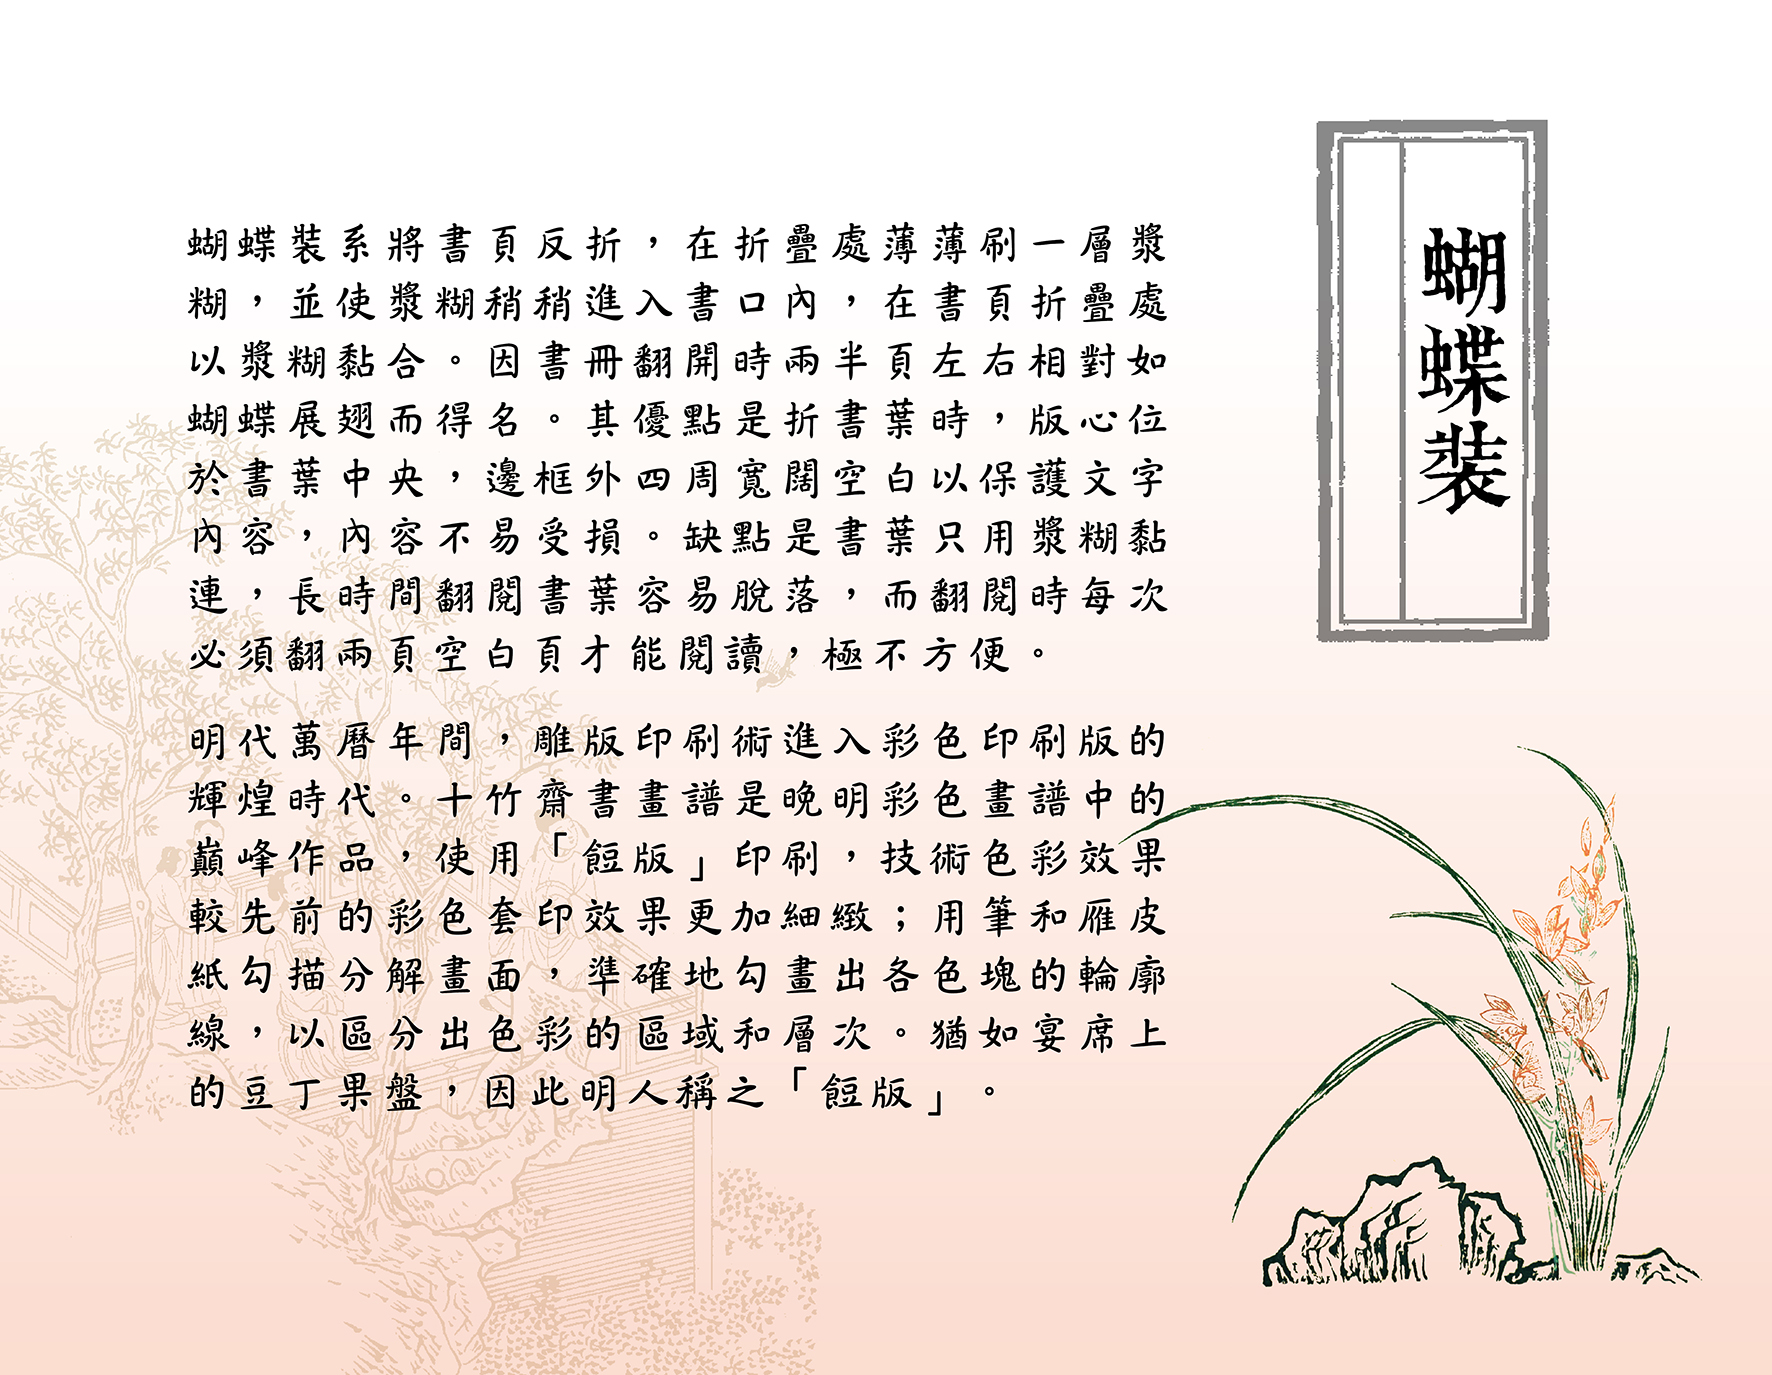 蝴蝶裝
蝴蝶裝系將書頁反折，在折疊處薄薄刷一層漿
糊，並使漿糊稍稍進入書口內，在書頁折疊處
以漿糊黏合。因書冊翻開時兩半頁左右相對如
蝴蝶展翅而得名。其優點是折書葉時，版心位
於書葉中央，邊框外四周寬闊空白以保護文字
內容，內容不易受損。缺點是書葉只用漿糊黏
連，長時間翻閱書葉容易脫落，而翻閱時每次
必須翻兩頁空白頁才能閱讀，極不方便。
明代萬曆年間，雕版印刷術進入彩色印刷版的
輝煌時代。十竹齋書畫譜是晚明彩色畫譜中的
巔峰作品，使用「餖版」印刷，技術色彩效果
較先前的彩色套印效果更加細緻；用筆和雁皮
紙勾描分解畫面，準確地勾畫出各色塊的輪廓
線，以區分出色彩的區域和層次。猶如宴席上
的豆丁果盤，因此明人稱之「餖版」。